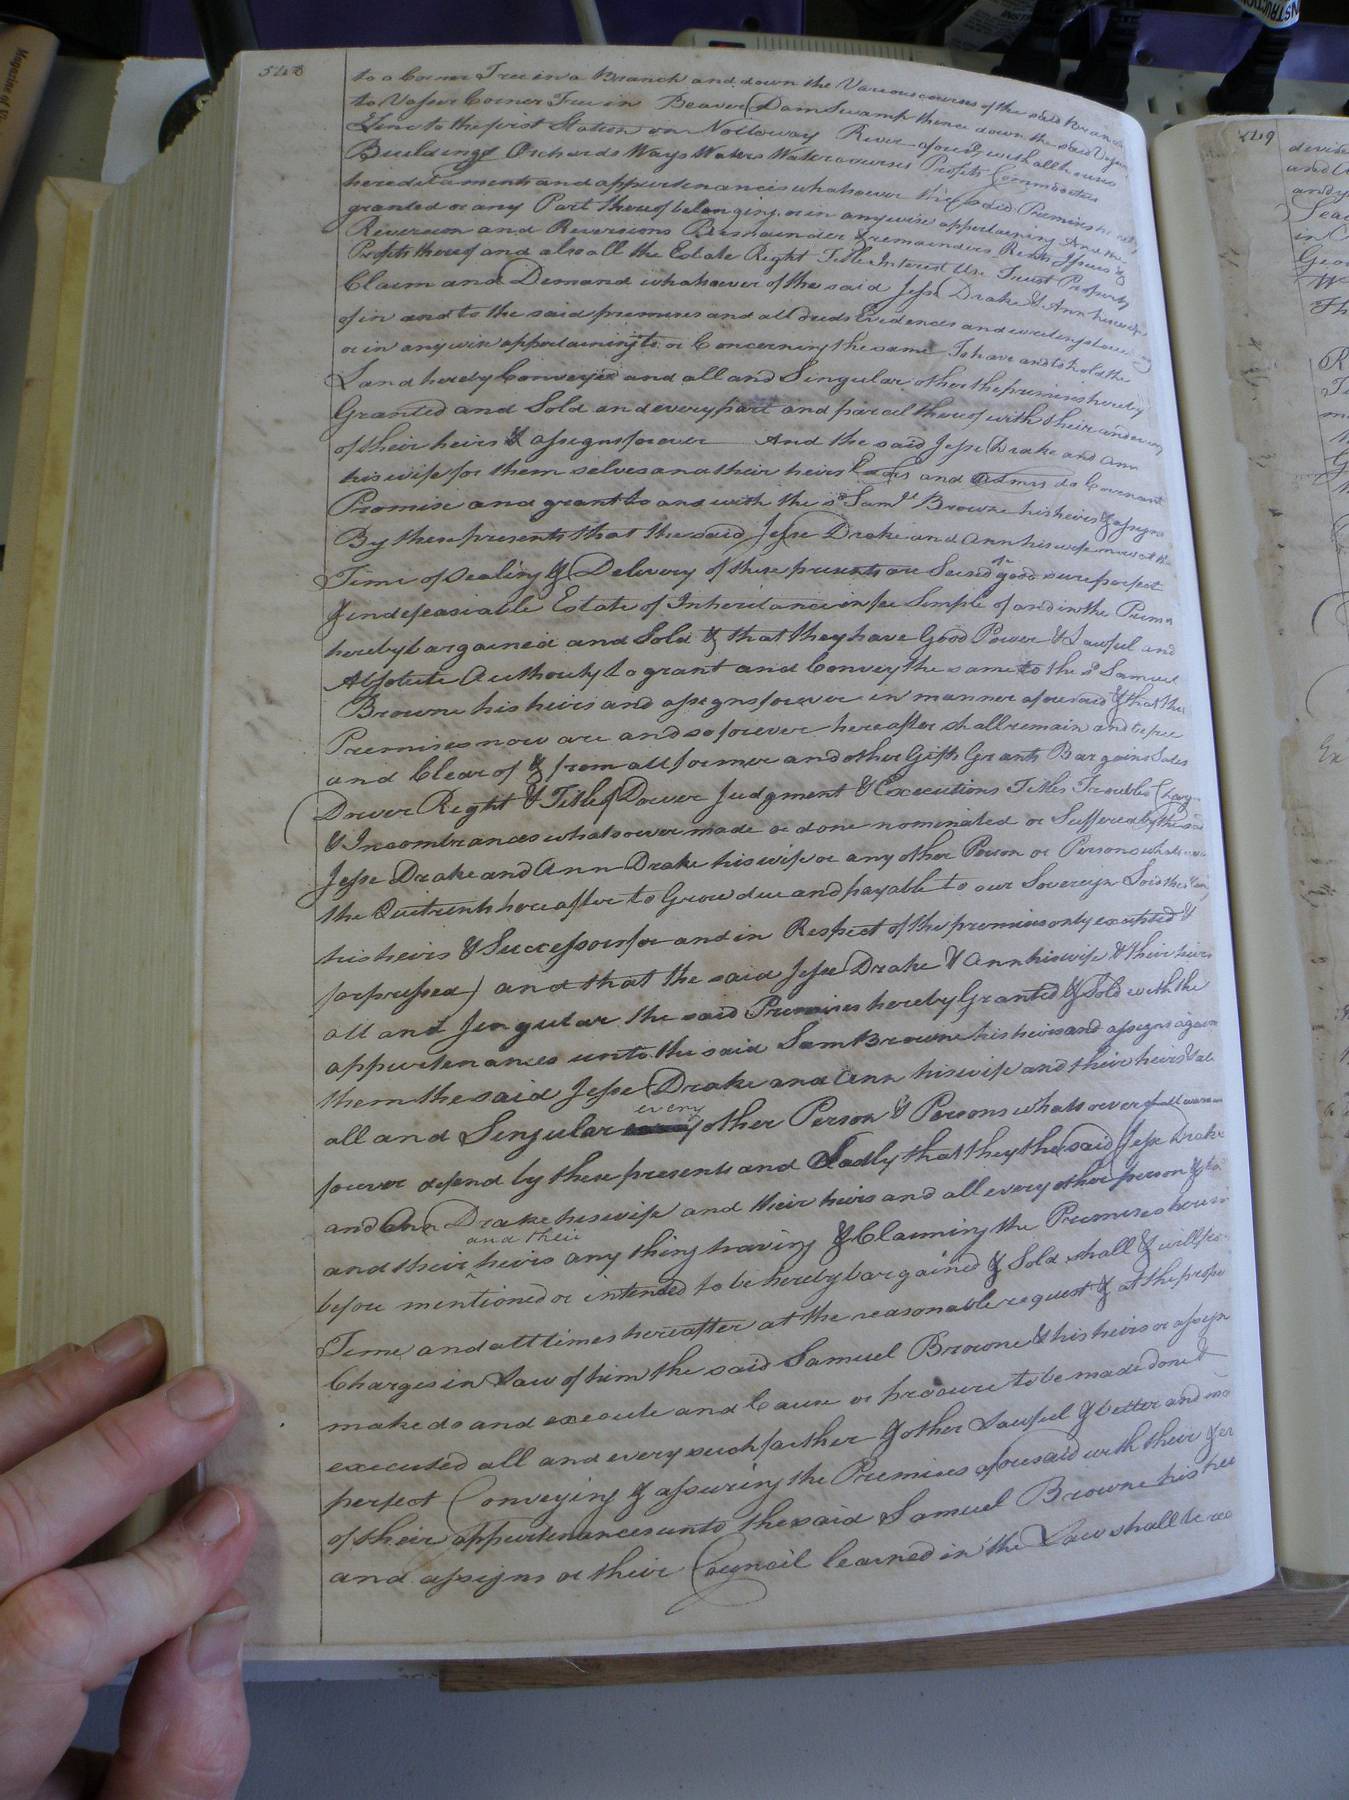 548
to a Corner Tree in a Branch and down the Various courses of the said Branch
to Vasser Corner Tree in Beaver Dam Swamp thence down the said
Line to the first Station on Nottoway River afores.d with all houses
Buildings Orchards Ways Waters Watercourses Profits Commodities
hereditaments and appurtenances whatsoever the said Premises
granted or any Part thereof belonging or in any wise appertaining And the
Reversion and Reversions Remainder & remainders Rents Issues &
Profits thereof and also all the Estate Right Title Interest Use Trust Property
Claim and Demand whatsoever of the said Jesse Drake & Ann his wife
of in and to the said premises and all deeds Evidences and writings
or in any wise appertaining to or Concerning the same To have and to hold the
Land hereby Conveyed and all and Singular other the premises hereby
Granted and Sold and every part and parcel thereof with their and every
of their heirs & assigns forever And the said Jesse Drake and Ann
his wife for them selves and their heirs Exors and Admrs do Covenant
Promise and grant to and with the sd Saml Browne his heirs & assigns
By these presents that the said Jesse Drake and Ann his wife now at the
Time of Sealing & Delivery of these presents are Seised of good sure perfect
& indefeasiable Estate of Inheritance in fee Simple of and in the Prem
hereby bargained and Sold & that they have Good Power & Lawful and
Absolute Authority to grant and Convey the same to the sd Samuel
Browne his heirs and assigns forever in manner aforesaid & that the
Premises now are and so forever hereafter shall remain and be free
and Clear of & from all former and other Gifts Grants Bargains Sales
Dower Right & Title of Dower Judgment & Executions Titles Troubles Charg
& Incombrances whatsoever made or done nominated or Suffered by the said
Jesse Drake and Ann Drake his wife or any other Person or Persons
the Quitrents hereafter to Grow due and payable to our Sovereign Lord the King
his heirs & Successors for and in Respect of the premises only excepted &
forprised) and that the said Jesse Drake & Ann his wife & their heirs
all and Singular the said Premises hereby Granted & Sold with the
appurtenances unto the said Sam Browne his heirs and assigns again
them the said Jesse Drake and Ann his wife and their heirs &
all and Singular every other Person & Persons whatsoever shall warran
forever defend by these presents and Ladly that they the said Jesse Drake
and Ann Drake his wife and their heirs and all every other person &
and their and their heirs any thing having & Claiming the Premises herein
before mentioned or intended to be hereby bargained & Sold shall & will
Time and all times hereafter at the reasonable request & at the prope
Charges in Law of him the said Samuel Browne & his heirs or assign
make do and execute and Cause or procure to be made done &
executed all and every such farther & other Lawful & better and mo
perfect Conveying & assuring the Premises aforesaid with their & ev
of their appurtenances unto the said Samuel Browne his hei
and assigns or their Council learned in the Law shall be
549